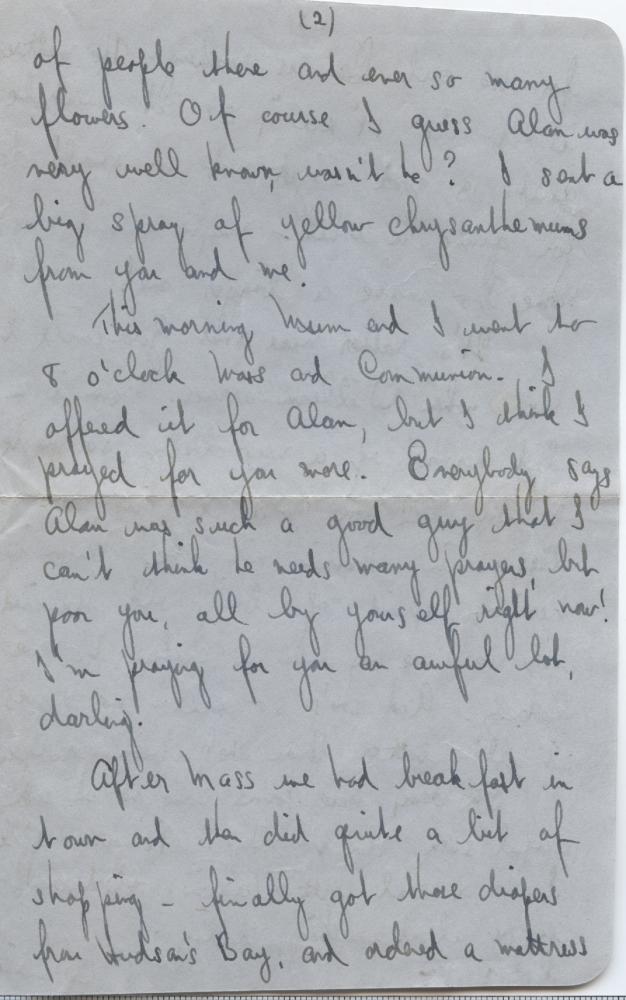 (2)
of people there and ever so many
flowers. Of course I guess Alan was
very well known, wasn't he? I sent a
big spray of yellow chrysanthemums
from you and me.
This morning Mum and I went to
8 o'clock Mass and Communion. I
offered it for Alan, but I think I
prayed for you more. Everybody says
Alan was such a good guy that I
can't think he needs many prayers, but
poor you, all by yourself right now!
I'm praying for you an awful lot,
darling.
After Mass we had breakfast in
town and then did quite a bit of
shopping - finally got those diapers
from Hudson's Bay, and ordered a mattress